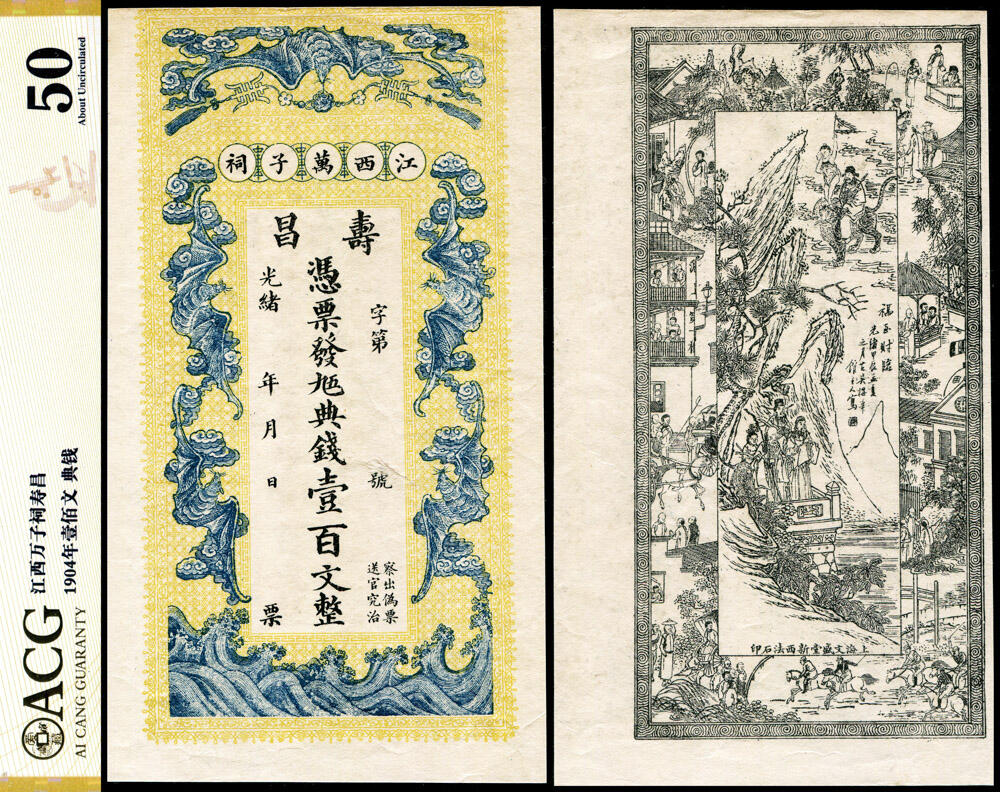 50
About Uncirculated
江西万子祠寿昌
1904年壹佰文 典钱
ACG
AI CANG GUARANTY
江西萬子祠
壽昌
字第 號
憑票發兌典錢壹百文整
光緒 年 月 日 票
察出偽票
送官究治
福
財臨
光緒甲辰
上海文盛堂新西法石印